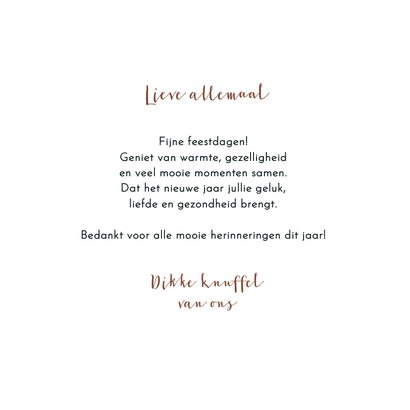 Lieve allemaal
Fijne feestdagen!
Geniet van warmte, gezelligheid
en veel mooie momenten samen.
Dat het nieuwe jaar jullie geluk,
liefde en gezondheid brengt.
Bedankt voor alle mooie herinneringen dit jaar!
Dikke knuffel
van ons